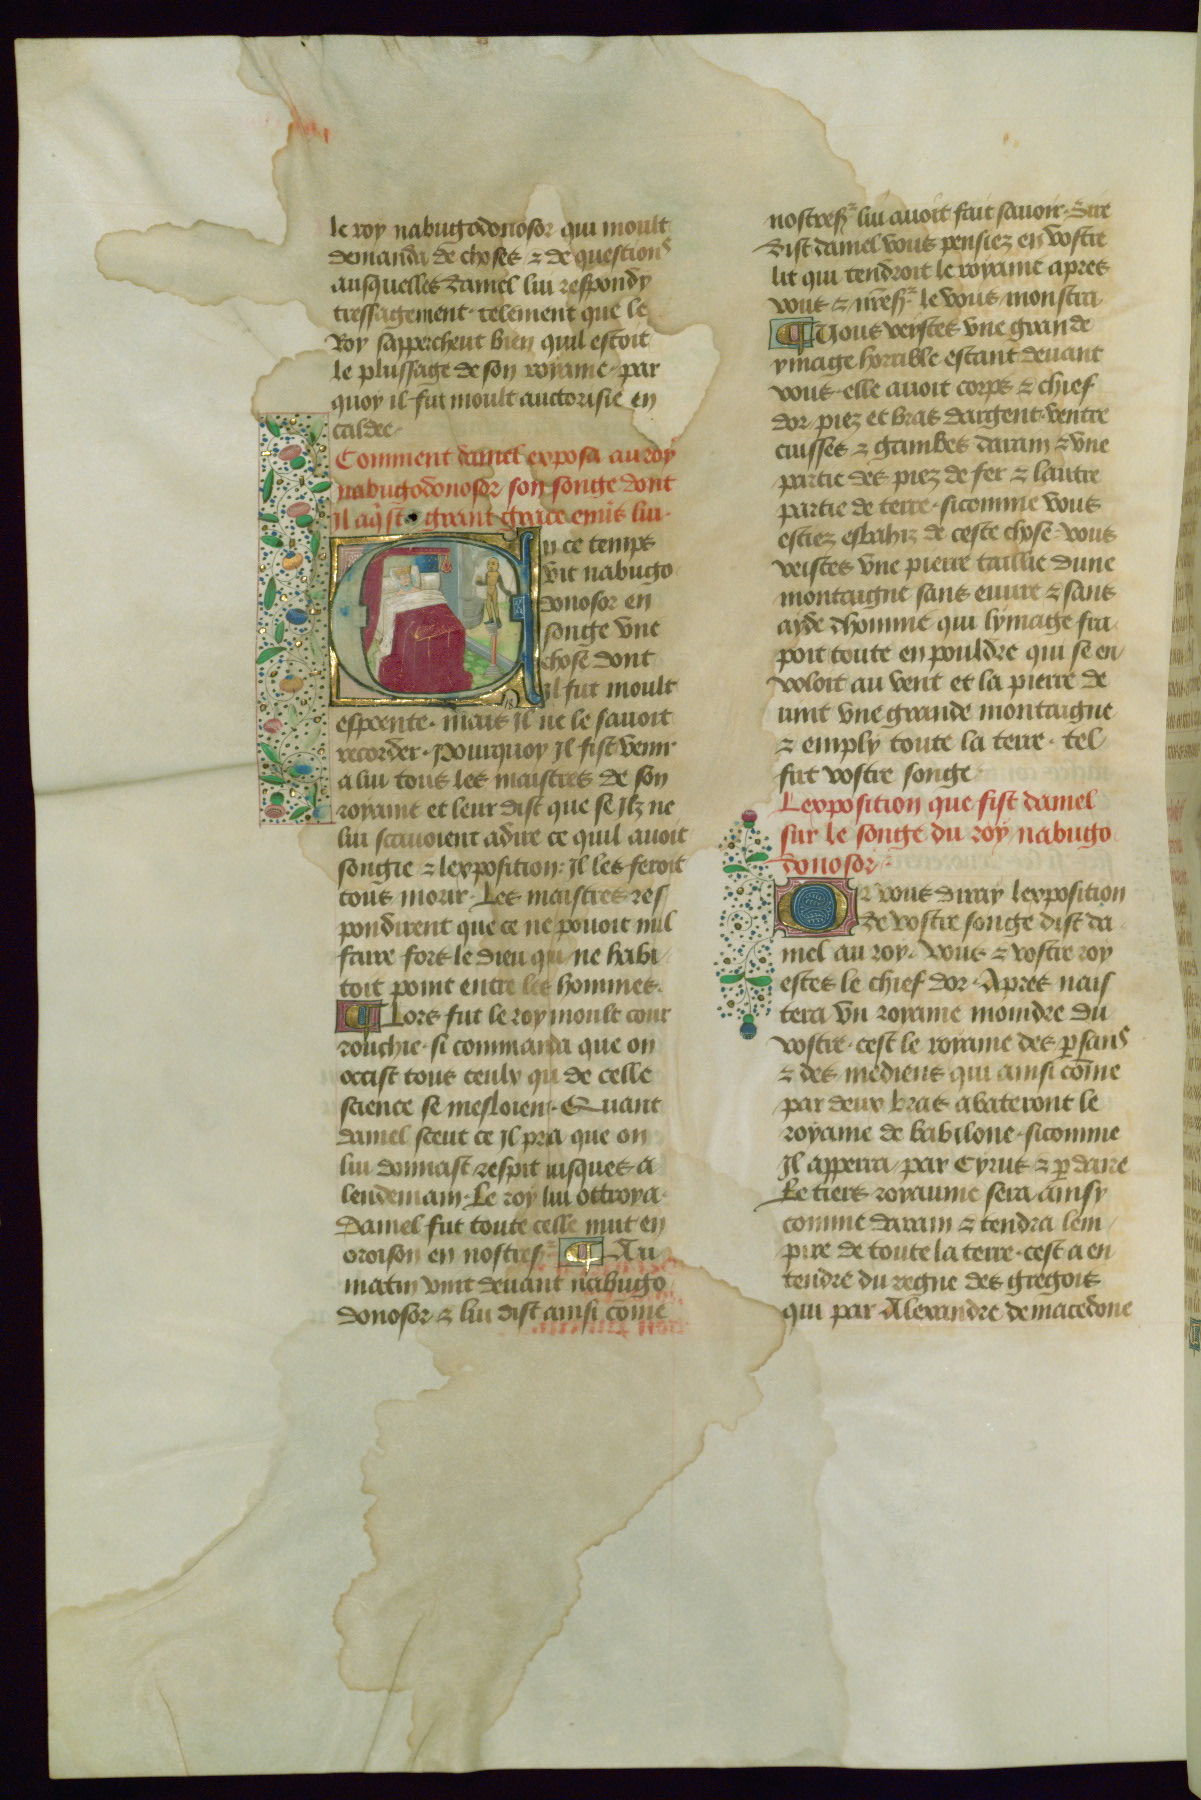 le roy nabugodonosor qui moult
demanda de choses ⁊ de questions
ausquelles daniel lui respondy
tressagement telement que le
Roy sappercheut bien quil estoit
le plussage de son royame par
quoy il fut moult auctorisie en
caldee
Comment daniel exposa au roy
nabugodonosor son songe dont
Il aq̄st grant grace enūs lui
En ce temps
vit nabugo
donosor en
songe vne
chose dont
il fut moult
espoente mais Il ne le sauoit
recorder Pourquoy Il fist venir
a lui tous les maistres de son
royame et leur dist que se Ilz ne
lui scauoient adire ce quil auoit
songie ⁊ lexposition Il les feroit
tous morir Les maistres res
pondirent que ce ne pouoit nul
faire fors le dieu qui ne habi
toit point entre les hommes
¶ Lors fut le roy moult cour
rouchie si commanda que on
occist tous ceulx qui de celle
science se mesloient Quant
daniel sceut ce Il pria que on
lui donnast respit iusques a
lendemain Le roy lui ottroya
Daniel fut toute celle nuit en
oroison en nostreſr̄ ¶ Au
matin vint deuant nabugo
donosor ⁊ lui dist ainsi cōme
nostreſr̄ lui auoit fait sauoir Sire
dist daniel vous pensiez en vostre
lit qui tendroit le royame apres
vous ⁊ nr̄eſr̄ le vous monstra
¶ Vous veistes vne grande
ymage horrible estant deuant
vous elle auoit corps ⁊ chief
dor piez et bras dargent ventre
cuisses ⁊ gambes darain ⁊ vne
partie des piez de fer ⁊ lautre
partie de terre sicomme vous
estiez esbahiz de ceste chose vous
veistes vne pierre taillie dune
montaigne sans euure ⁊ sans
ayde dhomme qui lymage fra
poit toute en pouldre qui se en
voloit au vent et la pierre de
uint vne grande montaigne
⁊ emply toute la terre tel
fut vostre songe
Lexposition que fist daniel
sur le songe du roy nabugo
donosor
Or vous diray lexposition
de vostre songe dist da
niel au roy Vous ⁊ vostre roy
estes le chief dor Apres nais
tera vn royame moindre du
vostre cest le royame des ꝑsans
⁊ des mediens qui ainsi cōme
par deux bras abateront le
royame de babilone sicomme
Il apperra par Cyrus ⁊ ꝑ daire
Le tiers royaume sera ainsy
comme darain ⁊ tendra lem
pire de toute la terre cest a en
tendre du regne des gregois
qui par Alexandre de macedone